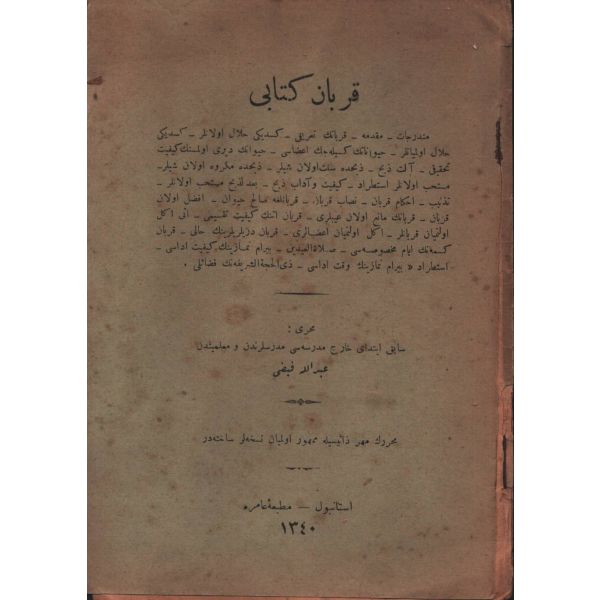 قربان كتابى
مندرجات ـ مقدمه ـ قربانك تعريفى ـ كسديكى حلال اولانلر ـ كسديكى
حلال اولميانلر ـ حيواناتك كسيله‌جك اعضاسى ـ حيوانك ديرى اولمسنك كيفيت
تحقيقى ـ آلت ذبح ـ ذبحده سنت اولان شيلر ـ ذبحده مكروه اولان شيلر ـ
مستحب اولانلر استطراد ـ كيفيت وآداب ذبح ـ بعد الذبح مستحب اولانلر ـ
تذنيب ـ احكام قربان ـ نصاب قربان ـ قربانلغه صالح حيوان ـ افضل اولان
قربان ـ قربانك مانع اولان عيبلرى ـ قربان اتنك كيفيت تقسيمى ـ اتى اكل
اولنميان قربانلر ـ اكل اولنميان اعضالرى ـ قربان دريلرينك حالى ـ قربان
كسمه‌نك ايام مخصوصه‌سى ـ صلاة العيدين ـ بيرام نمازينك كيفيت اداسى ـ
استطراد « بيرام نمازينك وقت اداسى ـ ذى الحجة الشريفه‌نك فضائلى .
محررى :
سابق ابتداى خارج مدرسه‌سى مدرسلرندن و معلميندن
عبدالله فيضى
محررك مهر ذاتيسيله ممهور اولميان نسخه‌لر ساخته‌در
استانبول — مطبعۀ عامره
١٣٤٠